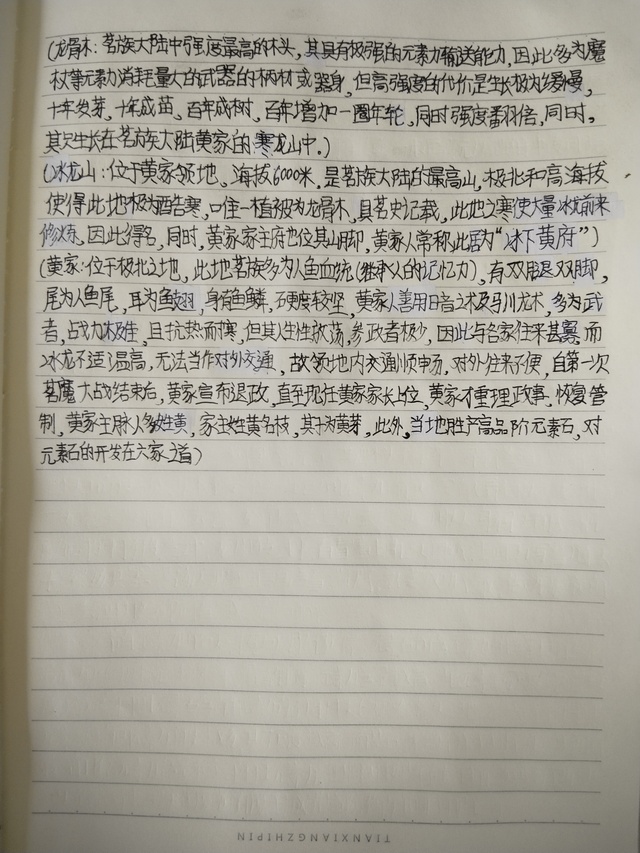 (龙骨木：茗族大陆中强度最高的木头，其具有极强的元素力输送能力，因此多为魔
杖等元素力消耗量大的武器的柄材或器身，但高强度的代价是生长极为缓慢，
十年发芽，十年成苗，百年成树，百年增加一圈年轮，同时强度翻倍，同时，
其只生长在茗族大陆黄家的寒龙山中。)
(冰龙山：位于黄家领地、海拔6000米，是茗族大陆的最高山，极北和高海拔
使得此地极为酷寒，唯一植被为龙骨木，具茗史记载，此地之寒使大量冰蛟前来
修炼，因此得名，同时，黄家家主府也位其山脚，黄家人常称此居为“冰下黄府”)
(黄家：位于极北之地，此地茗族多为人鱼血统(继承人的记忆力)，有双腿双脚，
尾为人鱼尾，耳为鱼翅，身有鱼鳞，硬度较坚，黄家人善用日音之术及马川龙术，多为武
者，占战力极佳，且抗热而寒，但其人生性放荡，参政者极少，因此与名家往来甚寡，而
冰龙不适温高，无法当作对外交通，故领地内交通顺申畅，对外往来不便，自第一次
茗魔大战结束后，黄家宣布退政，直至现任黄家家长上位，黄家才重理政事，恢复管
制，黄家主脉人多姓黄，家主姓黄名枝，其子为黄芽，此外，当地胜产高品阶元素石，对
元素石的开发在六家之首)
TIANXIANGZHIPIN